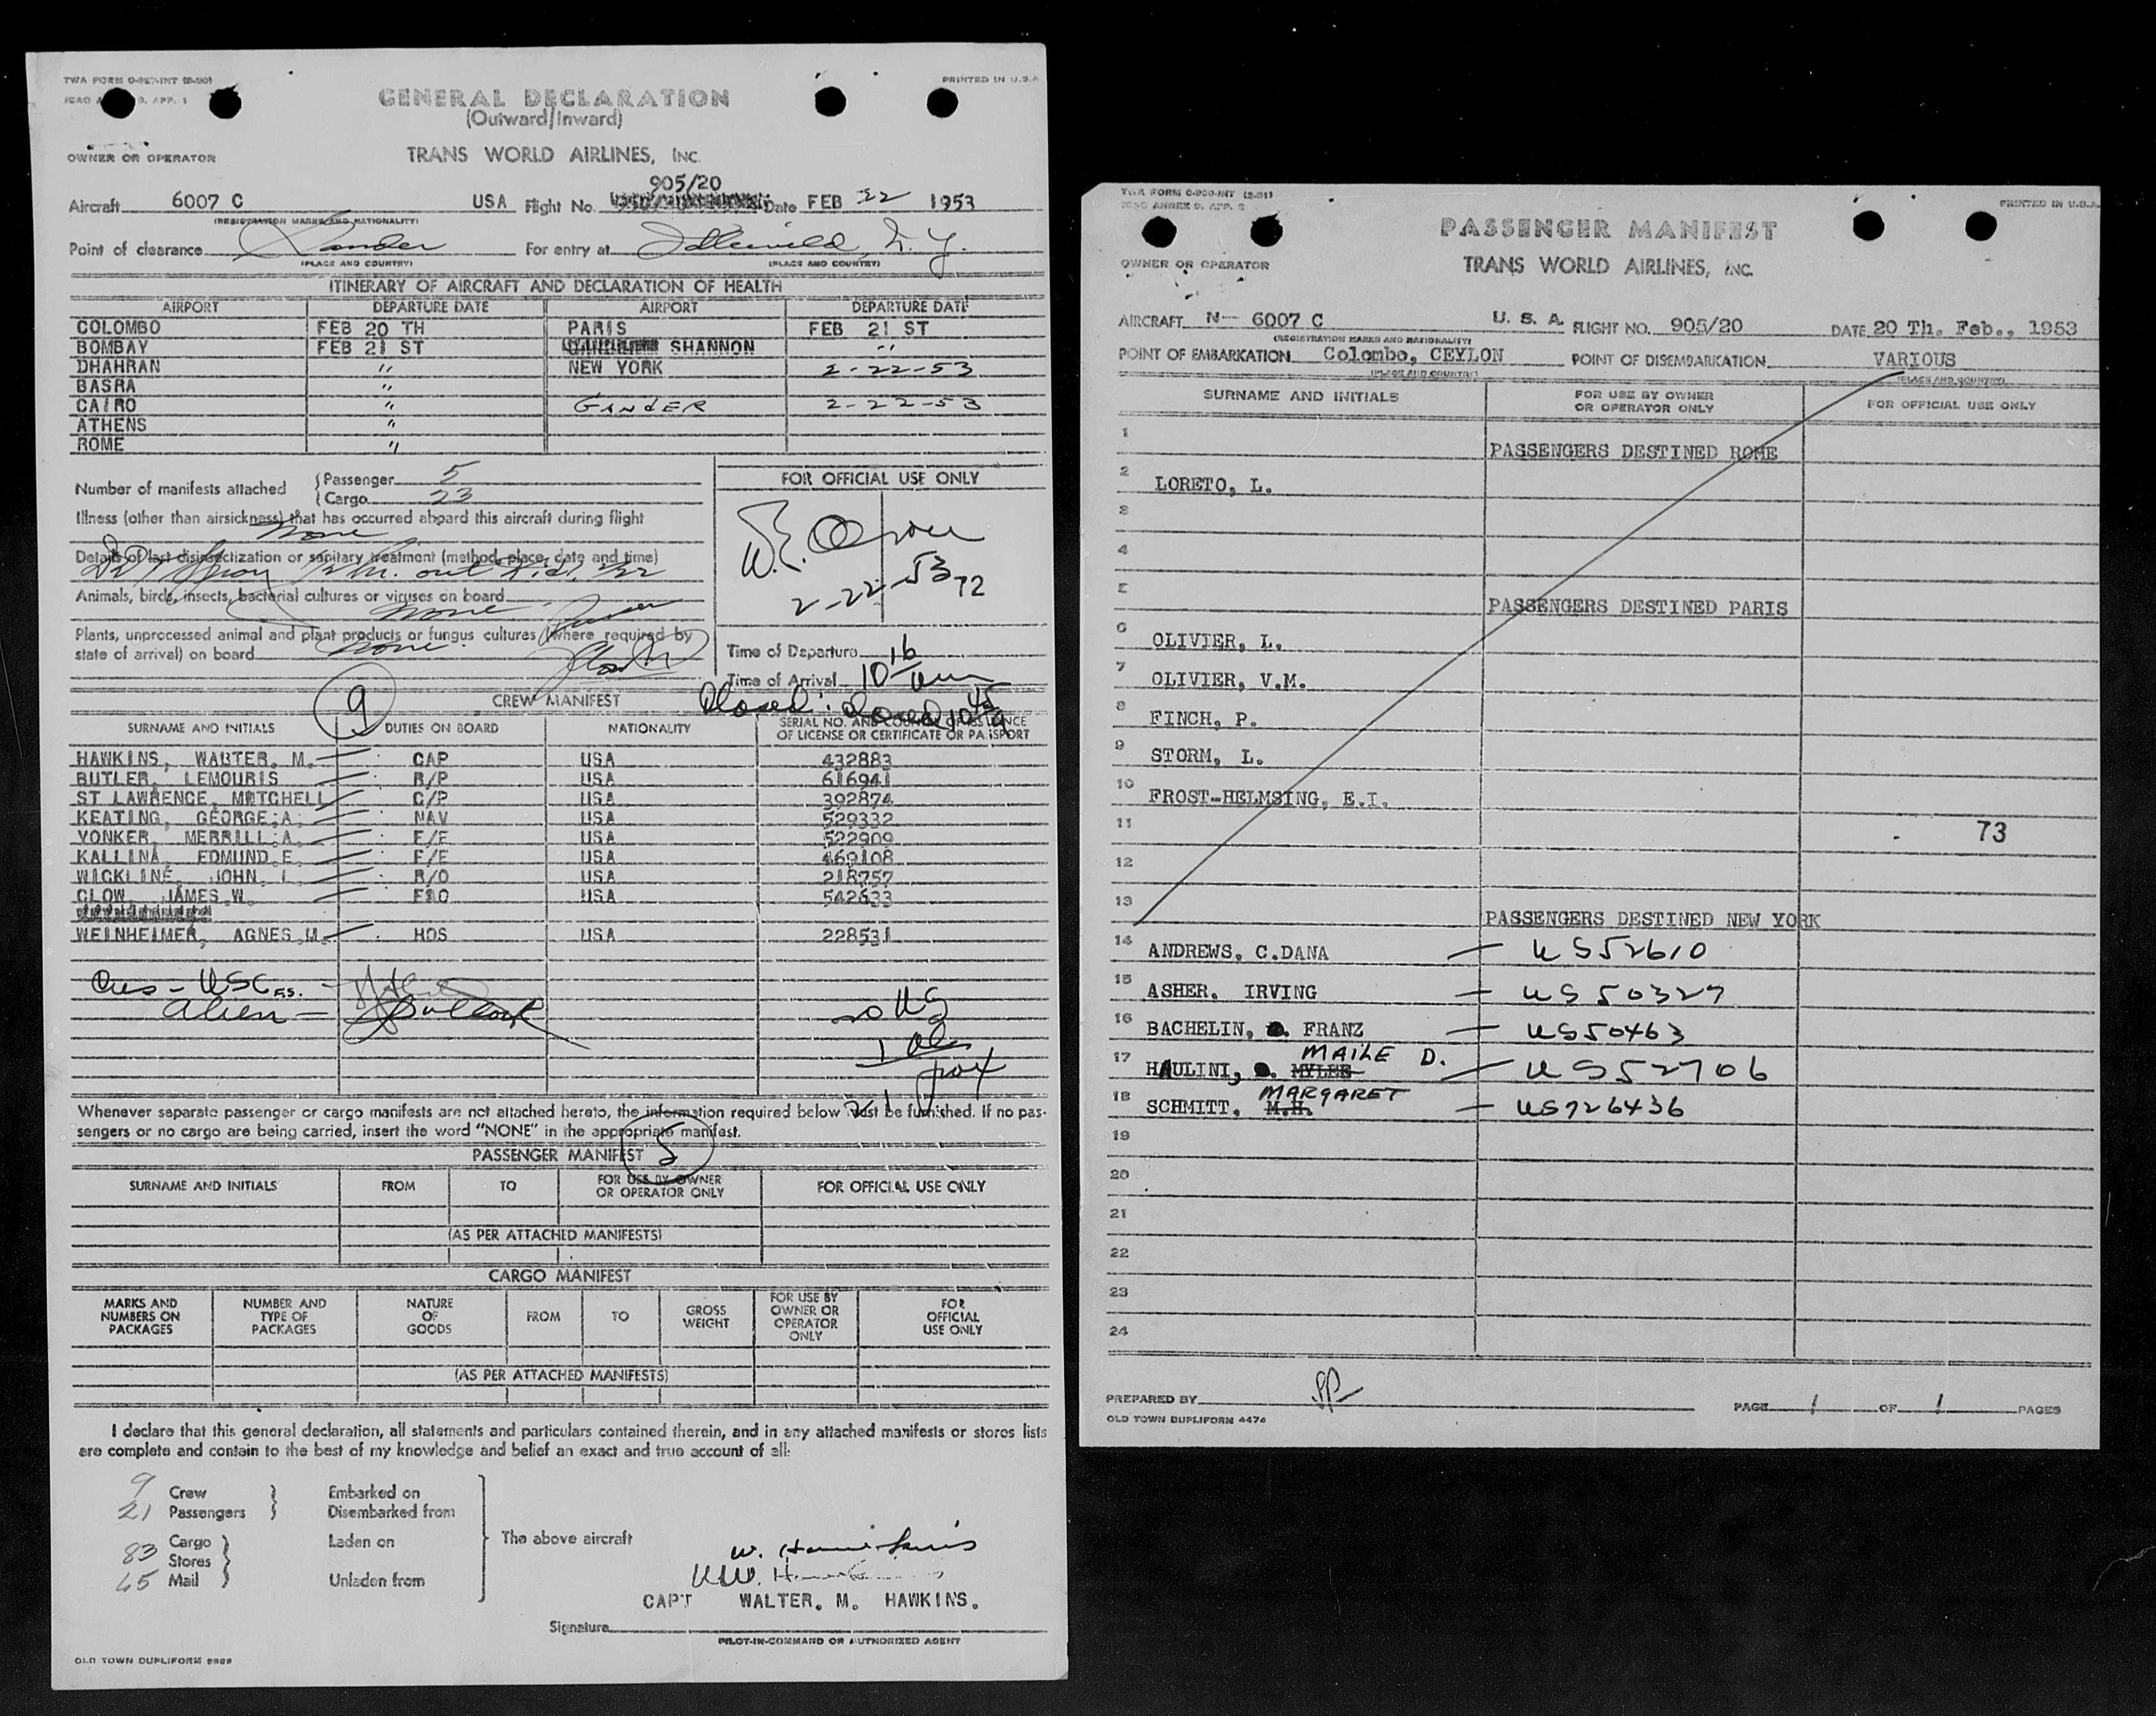 TWA FORM O-957-INT (2-50)
PRINTED IN U.S.A
GENERAL DECLARATION
(Outward/Inward)
OWNER OR OPERATOR
TRANS WORLD AIRLINES, INC.
905/20
Aircraft 6007 C USA Flight No. Date FEB 22 1953
(REGISTRATION MARKS AND NATIONALITY)
Point of clearance Gander For entry at Idlewild, N.Y.
(PLACE AND COUNTRY) (PLACE AND COUNTRY)
ITINERARY OF AIRCRAFT AND DECLARATION OF HEALTH
AIRPORT DEPARTURE DATE AIRPORT DEPARTURE DATE
COLOMBO FEB 20 TH PARIS FEB 21 ST
BOMBAY FEB 21 ST SHANNON "
DHAHRAN " NEW YORK 2-22-53
BASRA "
CAIRO " GANDER 2-22-53
ATHENS "
ROME "
Number of manifests attached { Passenger 5
{ Cargo 23
FOR OFFICIAL USE ONLY
Illness (other than airsickness) that has occurred aboard this aircraft during flight
None
Details of last disinsectization or sanitary treatment (method, place, date and time)
Animals, birds, insects, bacterial cultures or viruses on board None
2-22-53 72
Plants, unprocessed animal and plant products or fungus cultures (where required by
state of arrival) on board None
Time of Departure
Time of Arrival 10 16
CREW MANIFEST
9
SURNAME AND INITIALS DUTIES ON BOARD NATIONALITY SERIAL NO. AND COUNTRY OF ISSUANCE
OF LICENSE OR CERTIFICATE OR PASSPORT
HAWKINS, WALTER. M. CAP USA 432883
BUTLER, LEMOURIS R/P USA 616941
ST LAWRENCE, MITCHELL C/P USA 392874
KEATING, GEORGE.A. NAV USA 529332
YONKER, MERRILL.A. F/E USA 522909
KALLINA, EDMUND.E. F/E USA 469108
WICKLINE, JOHN. L. R/O USA 218757
CLOW, JAMES.W. FRO USA 542633
WEINHEIMER, AGNES.M. HOS USA 228531
Cus - USC FS.
Alien - Bullock
20 US
1 al
21 pax
Whenever separate passenger or cargo manifests are not attached hereto, the information required below must be furnished. If no pas-
sengers or no cargo are being carried, insert the word "NONE" in the appropriate manifest.
PASSENGER MANIFEST 5
SURNAME AND INITIALS FROM TO FOR USE BY OWNER
OR OPERATOR ONLY FOR OFFICIAL USE ONLY
(AS PER ATTACHED MANIFESTS)
CARGO MANIFEST
MARKS AND NUMBERS ON PACKAGES NUMBER AND TYPE OF PACKAGES NATURE OF GOODS FROM TO GROSS WEIGHT FOR USE BY OWNER OR OPERATOR ONLY FOR OFFICIAL USE ONLY
(AS PER ATTACHED MANIFESTS)
I declare that this general declaration, all statements and particulars contained therein, and in any attached manifests or stores lists
are complete and contain to the best of my knowledge and belief an exact and true account of all:
9 Crew Embarked on
21 Passengers Disembarked from
83 Cargo Laden on The above aircraft
Stores
65 Mail Unladen from
W. Hawkins
W. Hawkins
CAPT WALTER. M. HAWKINS.
Signature
PILOT-IN-COMMAND OR AUTHORIZED AGENT
OLD TOWN DUPLIFORM
TWA FORM O-900-INT (2-51)
ICAO ANNEX 9. APP. 2
PRINTED IN U.S.A.
PASSENGER MANIFEST
OWNER OR OPERATOR
TRANS WORLD AIRLINES, INC.
AIRCRAFT N- 6007 C U. S. A. FLIGHT NO. 905/20 DATE 20 Th. Feb., 1953
(REGISTRATION MARKS AND NATIONALITY)
POINT OF EMBARKATION Colombo, CEYLON POINT OF DISEMBARKATION VARIOUS
(PLACE AND COUNTRY) (PLACE AND COUNTRY)
SURNAME AND INITIALS FOR USE BY OWNER
OR OPERATOR ONLY FOR OFFICIAL USE ONLY
1 PASSENGERS DESTINED ROME
2 LORETO, L.
3
4
5 PASSENGERS DESTINED PARIS
6 OLIVIER, L.
7 OLIVIER, V.M.
8 FINCH, P.
9 STORM, L.
10 FROST-HELMSING, E.I.
11 73
12
13 PASSENGERS DESTINED NEW YORK
14 ANDREWS, C.DANA - US52610
15 ASHER. IRVING - US 50327
16 BACHELIN, FRANZ - US50463
MAILE D.
17 HAULINI, MYLEE - US52706
MARGARET
18 SCHMITT, M.H. - US726436
19
20
21
22
23
24
PREPARED BY
PAGE 1 OF 1 PAGES
OLD TOWN DUPLIFORM 4474